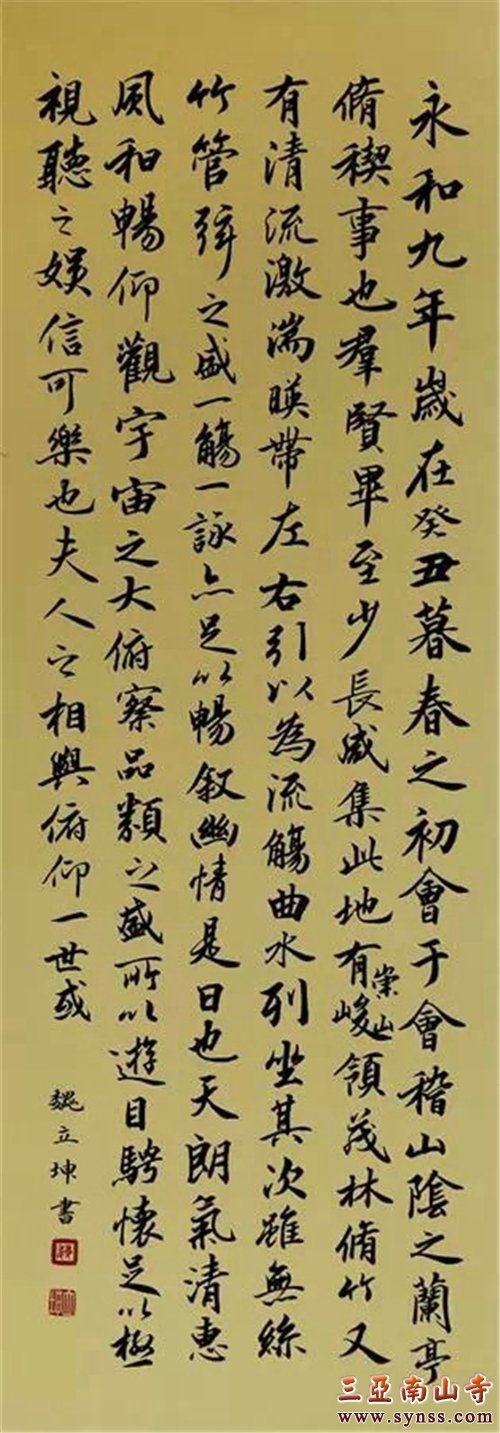 永和九年歲在癸丑暮春之初會于會稽山陰之蘭亭
脩稧事也羣賢畢至少長咸集此地有崇山峻領茂林脩竹又
有清流激湍暎帶左右引以為流觴曲水列坐其次雖無絲
竹管弦之盛一觴一詠亦足以暢叙幽情是日也天朗氣清惠
風和暢仰觀宇宙之大俯察品類之盛所以遊目騁懷足以極
視聽之娛信可樂也夫人之相與俯仰一世或
魏立坤書
三亞南山寺
www.synss.com